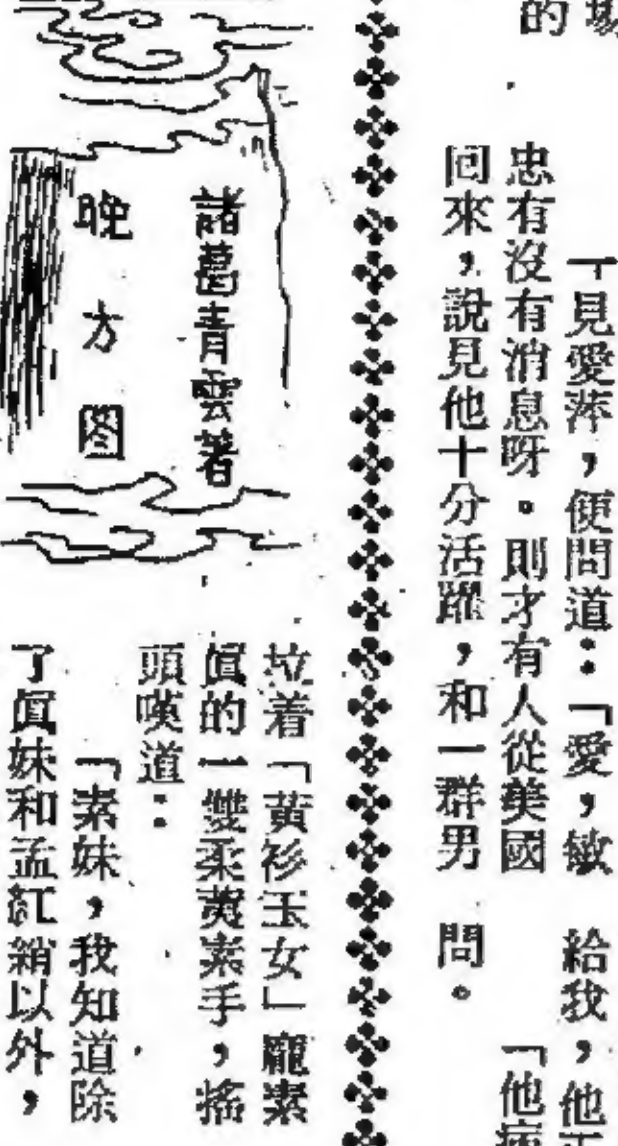 場
的
「見愛萍，便問道：「愛，敏
忠有沒有消息呀。則才有人從美國
回來，說見他十分活躍，和一群男
給我，他
「他病
問。
諸葛青雲著
晚方图
垃着「黃衫玉女」龐素
眞的一雙柔荑素手，搖
頭嘆道：
「素妹，我知道除
了眞妹和孟紅綃以外，